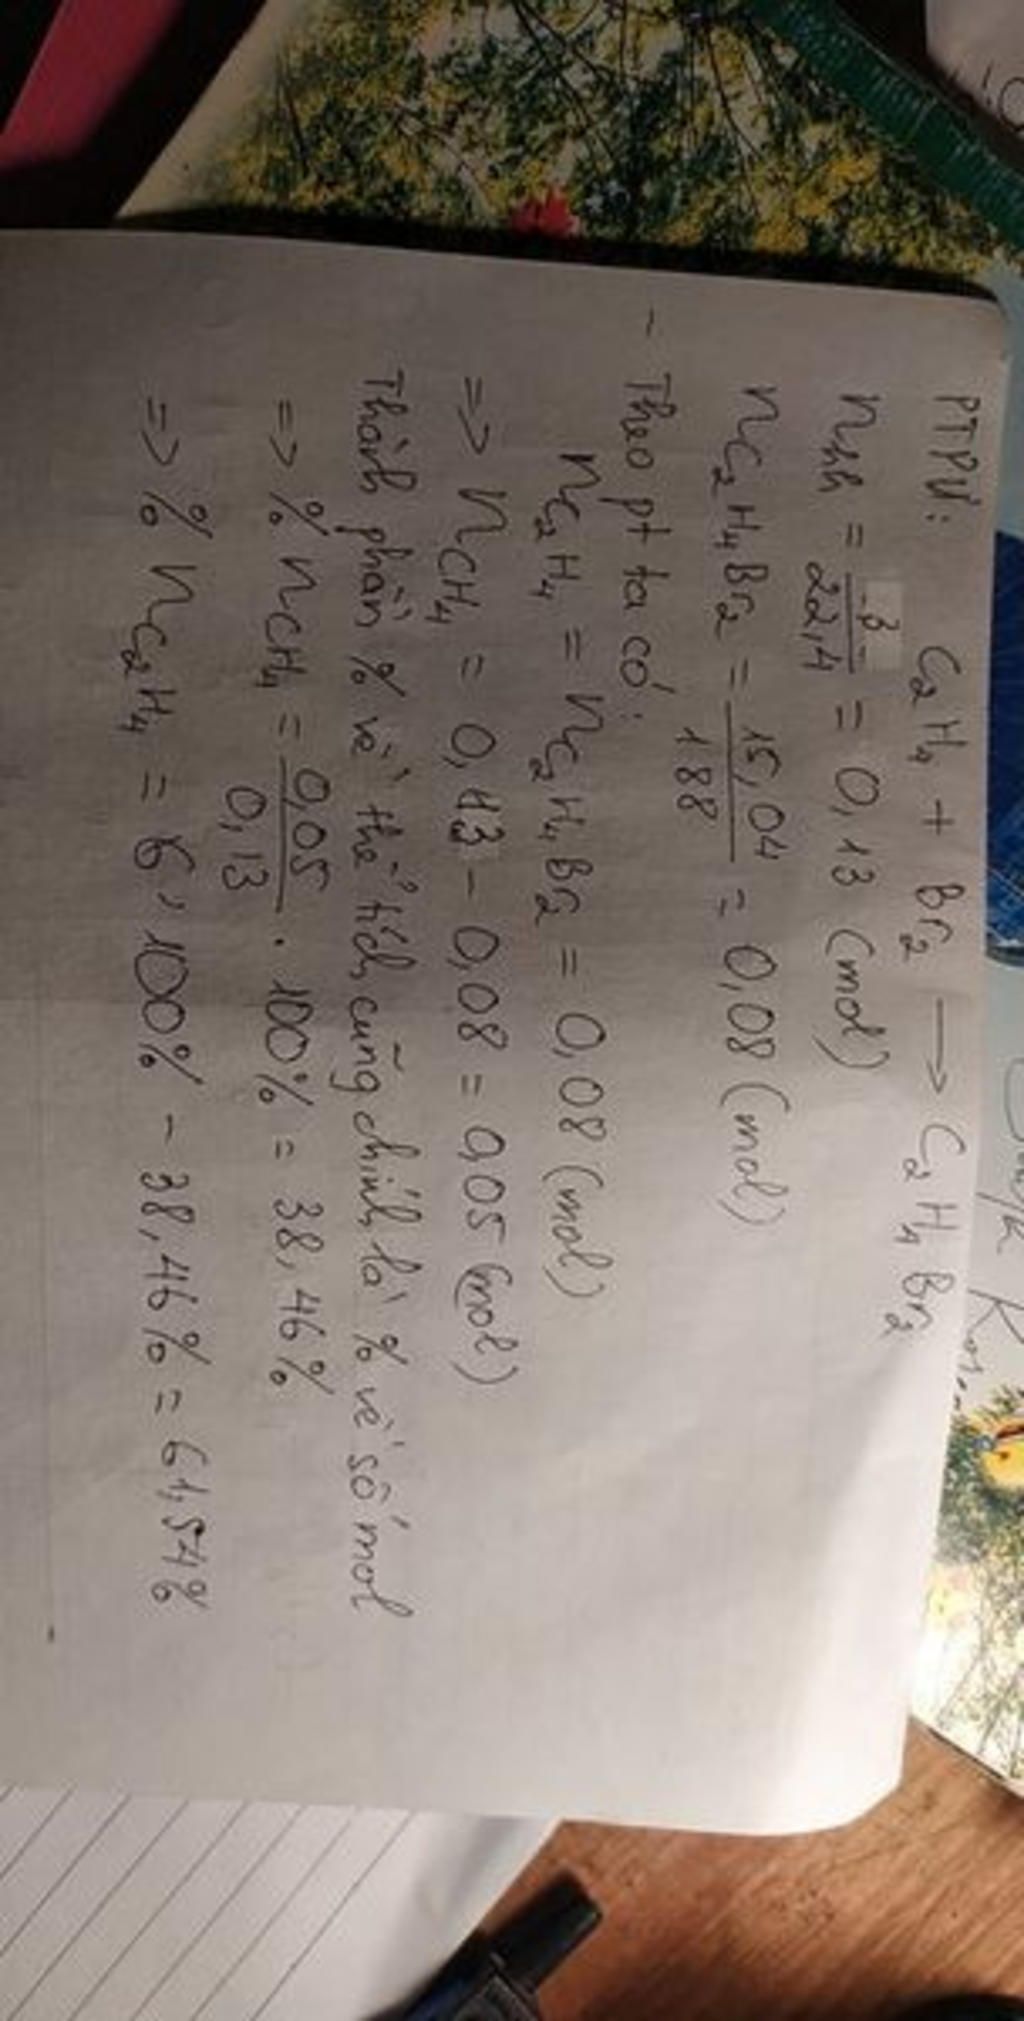 PTPƯ: C₂H₄ + Br₂ → C₂H₄Br₂
nhh = 3/22,4 = 0,13 (mol)
nC₂H₄Br₂ = 15,04/188 = 0,08 (mol)
- Theo pt ta có:
nC₂H₄ = nC₂H₄Br₂ = 0,08 (mol)
=> nCH₄ = 0,13 - 0,08 = 0,05 (mol)
Thành phần % về thể tích cũng chính là % về số mol
=> % nCH₄ = 0,05/0,13 . 100% = 38,46%
=> % nC₂H₄ = 100% - 38,46% = 61,54%